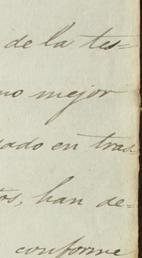 de la tes=
mo mejor
sado en tras
tos, han de=
conforme